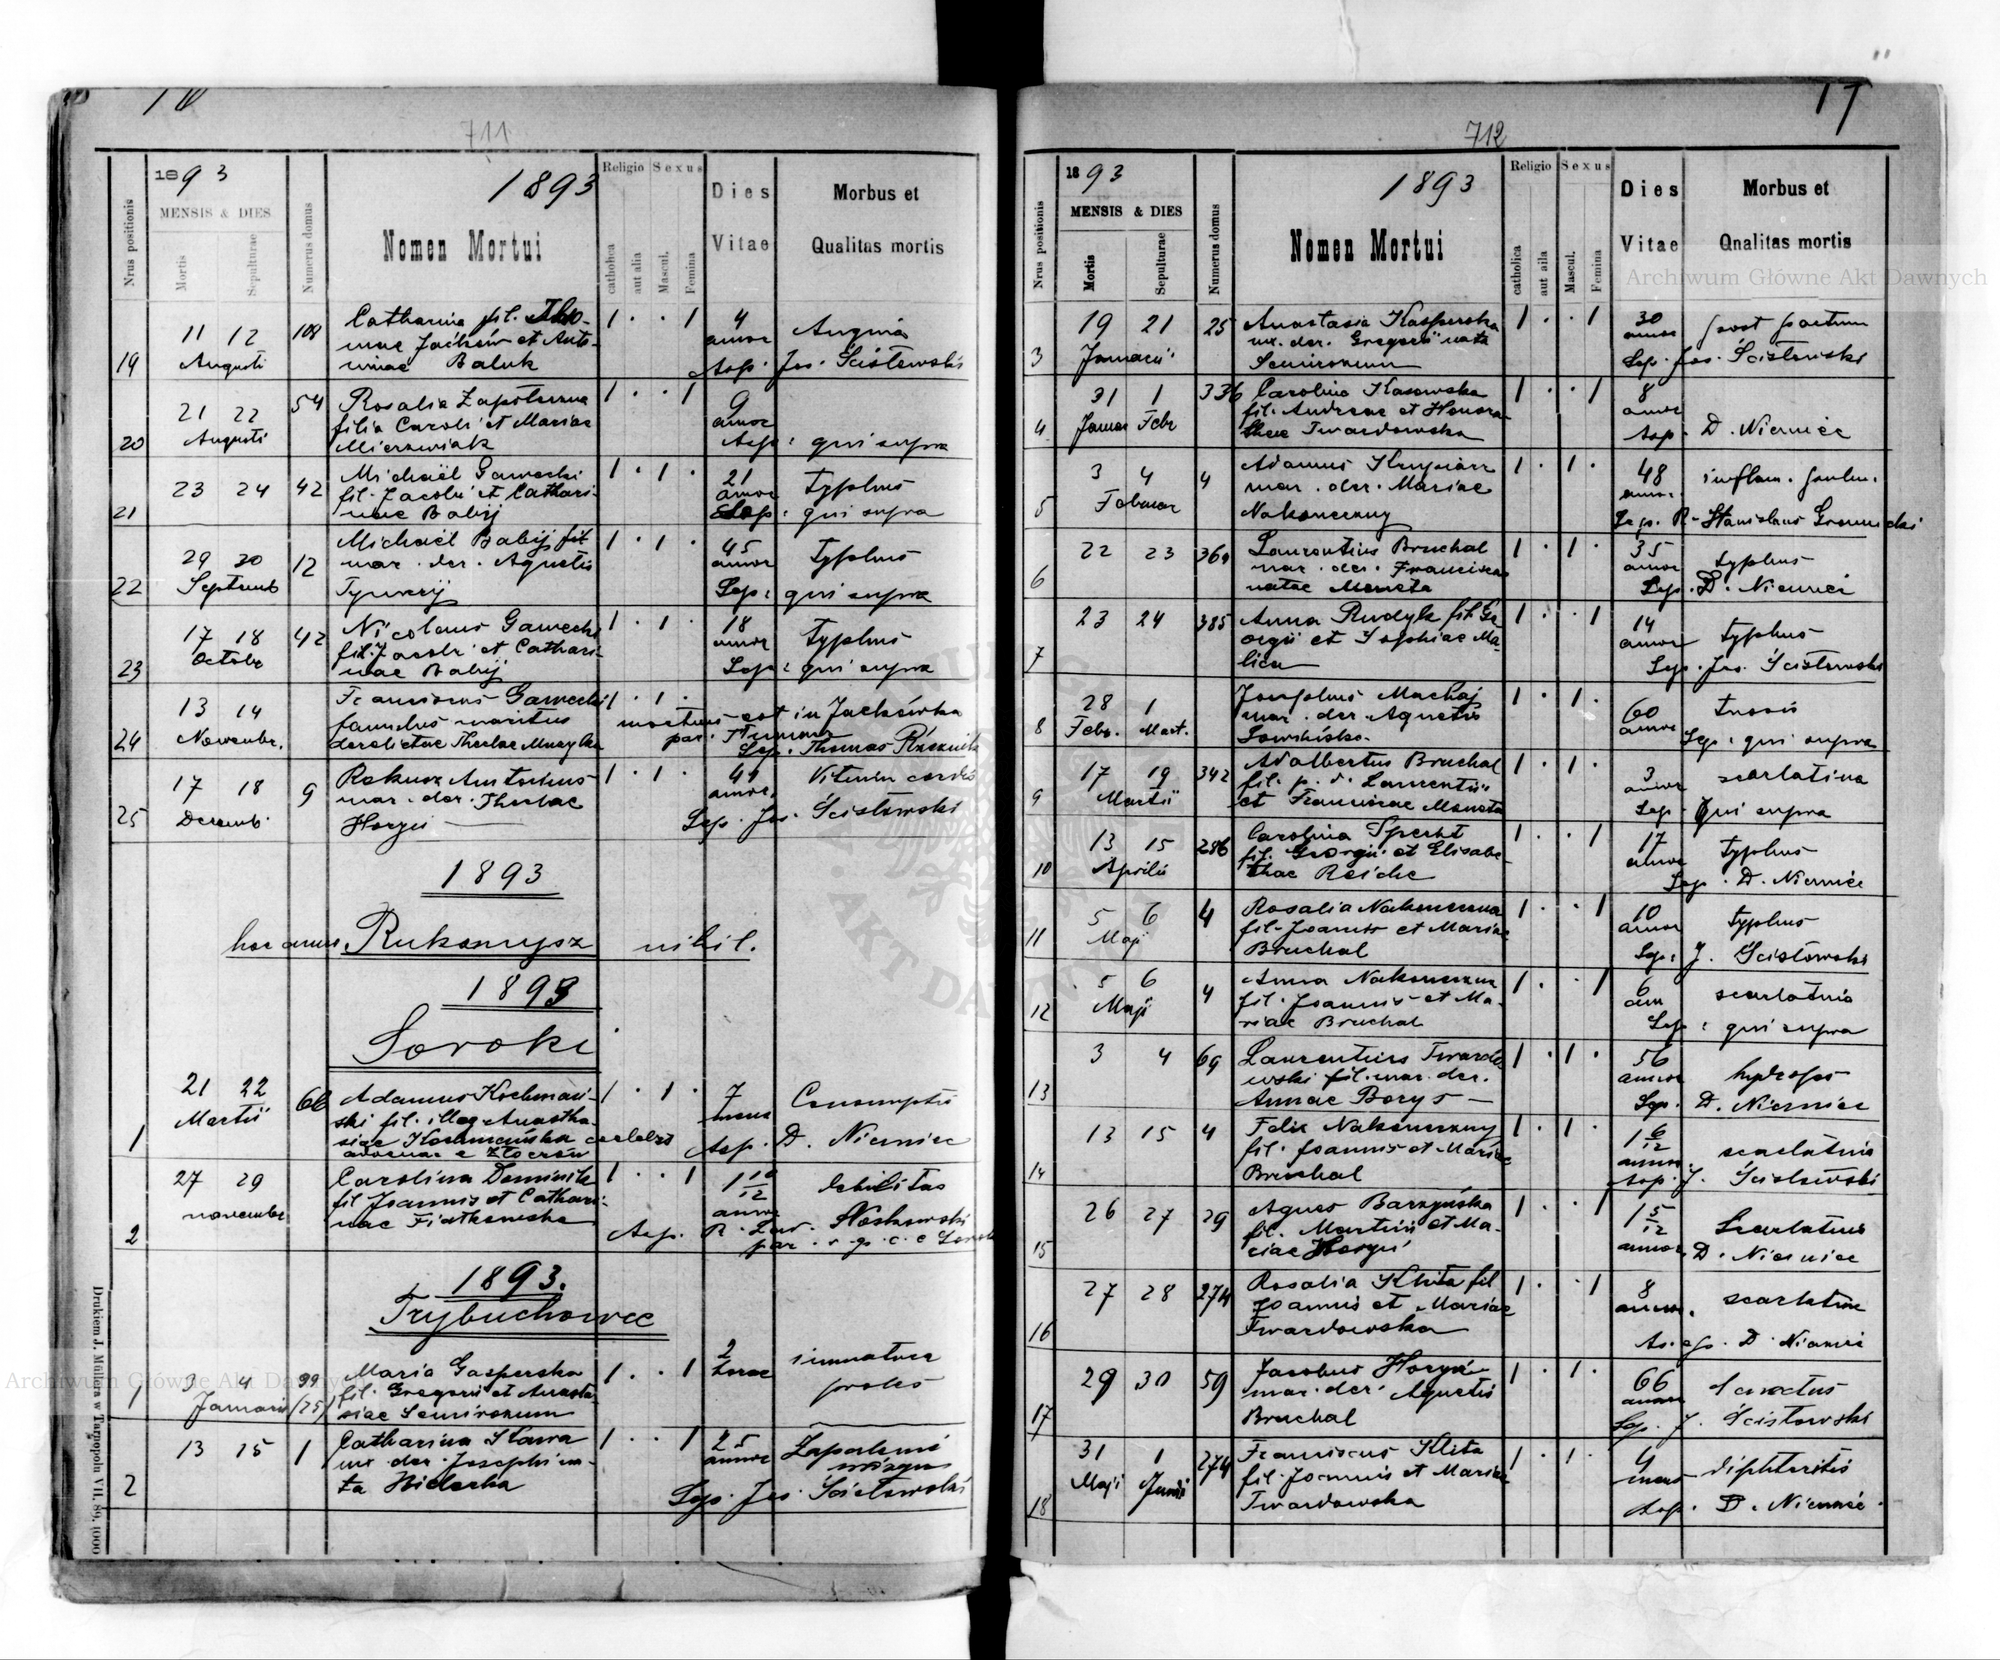 711
1893
1893
Religio Sexus
Dies Vitae
Morbus et Qualitas mortis
Nrus positionis
MENSIS & DIES
Mortis
Sepulturae
Numerus domus
Nomen Mortui
catholica
aut alia
Mascul.
Femina
19
11 12
Augusti
108
Catharina fil. Tho-
mae Jacków et Anto-
ninae Baluk
1 . . 1
4 annor
Angina
Sep. Jos. Ścisłowski
20
21 22
Augusti
54
filia Caroli et Mariae
1 . . 1
9 annor
Sep: qui supra
21
23 24
42
Michaël Gawecki
fil. Jacobi et Cathari-
nae Babij
1 . 1 .
21 annor
Typhus
Sep: qui supra
22
29 30
Septemb
12
Michaël Babij
mar. der. Agnetis
1 . 1 .
45 annor
Typhus
Sep: qui supra
23
17 18
Octobr
42
Nicolaus Gawecki
fil. Jacobi et Cathari-
nae Babij
1 . 1 .
18 annor
Typhus
Sep: qui supra
24
13 14
Novembr.
Franciscus Gawecki
famulus maritus
derelictae Theclae Muzyka
1 . 1 .
mortuus est in Jackówka
par.
Sep. Thomas
25
17 18
Decemb.
9
mar. der. Theclae
Horyń
1 . 1 .
annor.
Vitium cordis
Sep. Jos. Ścisłowski
1893
hoc anno Rukomysz nihil.
1893
Soroki
1
21 22
Martii
66
Adamus Kochmań-
ski fil. illeg. Anasta-
siae
1 . 1 .
7
Consumptio
Sep. D. Niemiec
2
27 29
novembr
Carolina Dominik
fil Joannis et Cathari-
nae Fiałkowska
1 . . 1
1 10/12 annor
debilitas
Sep. R.
1893.
Trybuchowce
1
3 4
Januarii
99
(25)
Maria Gasperska
fil. Gregorii et Anasta-
siae Semirozum
1 . . 1
2 horae
immatura
proles
2
13 15
1
Catharina Sława
ux. der. Josephi na-
ta
1 . . 1
25 annor
Zapalenie
mózgu
Sep. Jos. Ścisłowski
Drukiem J. Müllera w Tarnopolu VII. 89. 1000
17
712
1893
1893
Religio Sexus
Dies Vitae
Morbus et Qnalitas mortis
Nrus positionis
MENSIS & DIES
Mortis
Sepulturae
Numerus domus
Nomen Mortui
catholica
aut aila
Mascul.
Femina
3
19 21
Januarii
25
Anastasia Kasperska
ux. der. Gregorii nata
Semirozum
1 . . 1
30 annor
post partum
Sep. Jos. Ścisłowski
4
31 1
Januar Febr
336
Carolina Kasowska
fil. Andreae et Honora-
thae Twardowska
1 . . 1
8 annor
Sep. D. Niemiec
5
3 4
Februar
4
mar. der. Mariae
Nakoneczny
1 . 1 .
48 annor.
inflam. pulm.
Sep. R. Stanislaus
6
22 23
Laurentius Bruchal
mar. der. Franciscae
natae Maneta
1 . 1 .
35 annor
typhus
Sep. D. Niemiec
7
23 24
385
Anna Rudyk fil. Ge-
orgii et Sophiae Ma-
1 . . 1
14 annor
typhus
Sep. Jos. Ścisłowski
8
28 1
Febr. Mart.
Josephus Machaj
mar. der. Agnetis
1 . 1 .
60 annor
tussis
Sep: qui supra
9
17 19
Martii
342
Adalbertus Bruchal
fil. p. d. Laurentii
et Franciscae Maneta
1 . 1 .
3 annor
scarlatina
Sep. qui supra
10
13 15
Aprilis
286
Carolina Specht
fil. Georgii et Elisabe-
thae Reiche
1 . . 1
17 annor
typhus
Sep. D. Niemiec
11
5 6
Maji
4
Rosalia Nakoneczna
fil. Joannis et Mariae
Bruchal
1 . . 1
10 annor
typhus
Sep. J. Ścisłowski
12
5 6
Maji
4
Anna Nakoneczna
fil. Joannis et Ma-
riae Bruchal
1 . . 1
6 ann
scarlatina
Sep: qui supra
13
3 4
69
Laurentius Twardo-
wski fil. mar. der.
Annae Borys
1 . 1 .
56 annor
hydrops
Sep. D. Niemiec
14
13 15
4
Felix Nakoneczny
fil. Joannis et Mariae
Bruchal
1 . 1 .
1 6/12 annor
scarlatina
Sep. J. Ścisłowski
15
26 27
29
Agnes Barzyńska
fil. Martini et Ma-
riae Horyń
1 . . 1
1 5/12 annor
Scarlatina
D. Niemiec
16
27 28
274
Rosalia Klita fil
Joannis et Mariae
Twardowska
1 . . 1
8 annor.
scarlatina
D. Niemiec
17
29 30
59
Jacobus Horyń
mar. der. Agnetis
Bruchal
1 . 1 .
66 annor
Senectus
Sep. J. Ścisłowski
18
31 1
Maji Junii
274
Franciscus Klita
fil. Joannis et Mariae
Twardowska
1 . 1 .
diphteritis
Sep. D. Niemiec.
Archiwum Główne Akt Dawnych
Archiwum Główne Akt Dawnych